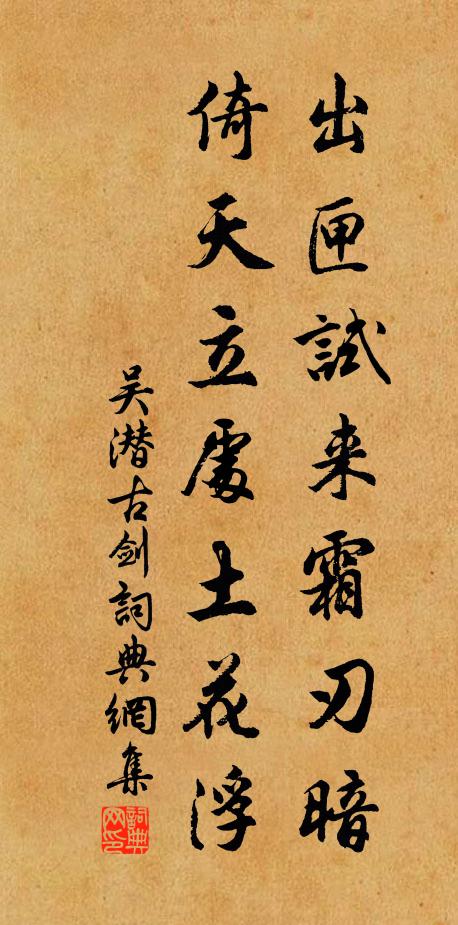 出匣試来霜刃暗
倚天立處土花浮
吴潜古劍詞典網集
詞典網印